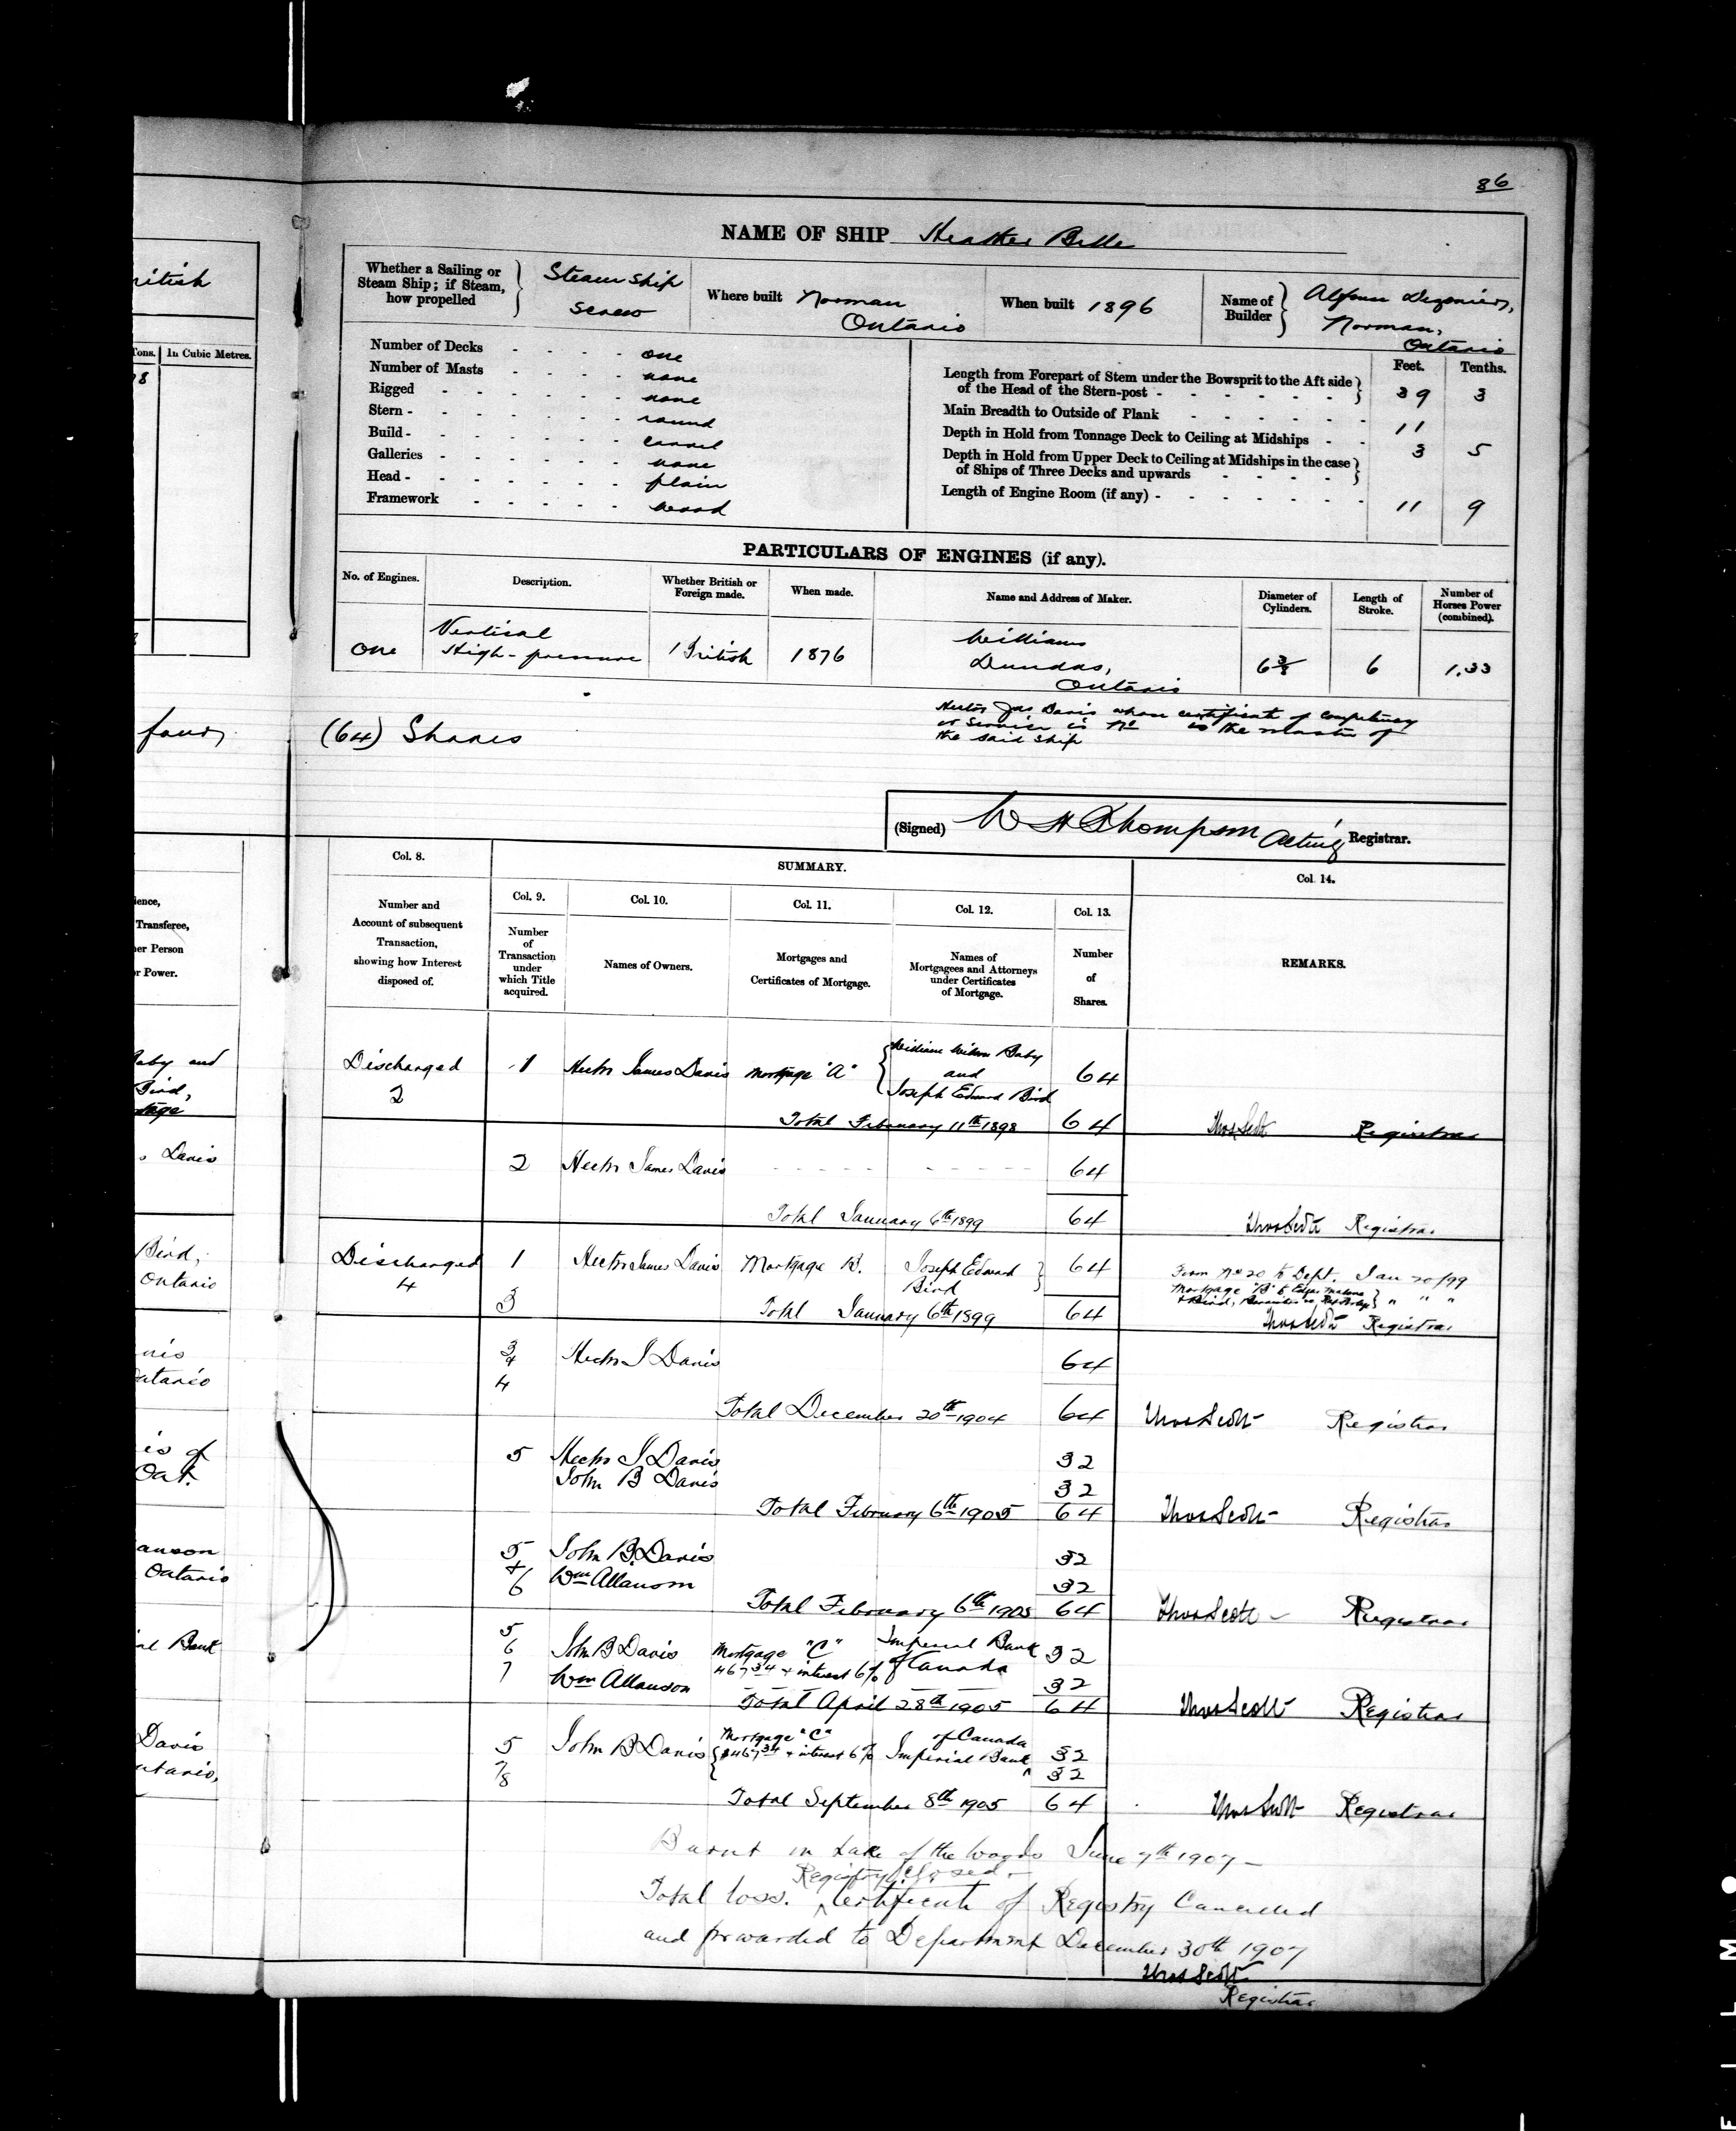 86
NAME OF SHIP Heather Belle
Whether a Sailing or
Steam Ship; if Steam,
how propelled
Steam ship
screw
Where built Norman
Ontario
When built 1896
Name of
Builder
Norman,
Ontario
Number of Decks - - - - one
Number of Masts - - - - none
Rigged - - - - - - none
Stern - - - - - - round
Build - - - - - - carvel
Galleries - - - - - - none
Head - - - - - - plain
Framework - - - - wood
Feet. Tenths.
Length from Forepart of Stem under the Bowsprit to the Aft side
of the Head of the Stern-post - - - - - - 39 3
Main Breadth to Outside of Plank - - - - - 11
Depth in Hold from Tonnage Deck to Ceiling at Midships - - 3 5
Depth in Hold from Upper Deck to Ceiling at Midships in the case
of Ships of Three Decks and upwards - - - -
Length of Engine Room (if any) - - - - - - 11 9
PARTICULARS OF ENGINES (if any).
No. of Engines.
Description.
Whether British or
Foreign made.
When made.
Name and Address of Maker.
Diameter of
Cylinders.
Length of
Stroke.
Number of
Horses Power
(combined).
One
Vertical
High-pressure
British
1876
Williams
Dundas,
Ontario
6 3/8
6
1.33
(64) Shares
Hector Jas Davis whose certificate of competency
or service is No is the master of
the said ship
(Signed) W H Thompson Acting Registrar.
Col. 8.
Number and
Account of subsequent
Transaction,
showing how Interest
disposed of.
SUMMARY.
Col. 9.
Number
of
Transaction
under
which Title
acquired.
Col. 10.
Names of Owners.
Col. 11.
Mortgages and
Certificates of Mortgage.
Col. 12.
Names of
Mortgagees and Attorneys
under Certificates
of Mortgage.
Col. 13.
Number
of
Shares.
Col. 14.
REMARKS.
Discharged
2
1 Hector James Davis Mortgage "A"
William Wilson Baby
and
Joseph Edward Bird
64
Total February 11th 1898 64 Thos Scott Registrar
2 Hector James Davis - - - - - - - - - - 64
Total January 6th 1899 64 Thos Scott Registrar
Discharged
4
1
3
Hector James Davis Mortgage B. Joseph Edward
Bird
64
Form No 20 to Dept. Jan 20/99
Total January 6th 1899 64 Thos Scott Registrar
3
4
4
Hector J Davis 64
Total December 20th 1904 64 Thos Scott Registrar
5 Hector J Davis 32
John B Davis 32
Total February 6th 1905 64 Thos Scott Registrar
5 John B. Davis 32
+
6 Wm Allanson 32
Total February 6th 1905 64 Thos Scott Registrar
5
6
7
John B Davis Mortgage "C" Imperial Bank 32
467 34 + interest 6% of Canada
Wm Allanson 32
Total April 28th 1905 64 Thos Scott Registrar
5
7
8
John B Davis
Mortgage "C"
$467 34 + interest 6%
of Canada
Imperial Bank
32
32
Total September 8th 1905 64 Thos Scott Registrar
Burnt in Lake of the Woods June 7th 1907 -
Registry Closed -
Total loss. Certificate of Registry Cancelled
and forwarded to Department December 30th 1907
Thos Scott
Registrar
ritish
Tons. In Cubic Metres.
four,
ience,
Transferee,
er Person
r Power.
aby and
Bird,
tage
s Davis
Bird,
Ontario
vis
ntario
is of
Ont.
anson
Ontario
al Bank
Davis
ntario,
F I L M